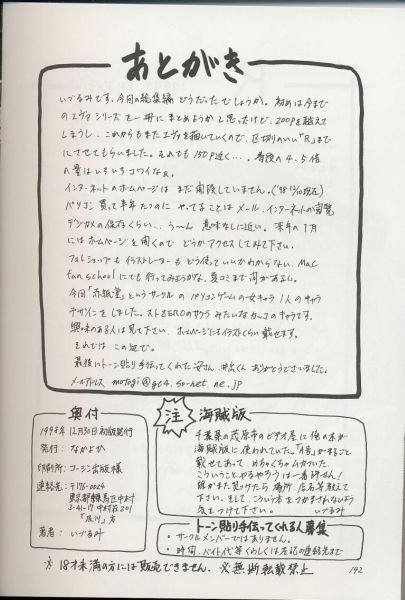 あとがき
いづるみです。今回の総集編 どうだったでしょうか。初めは今まで
のエヴァシリーズを一冊にまとめようかと思ったけど、200Pを越えて
しまうし、これからもまたエヴァを描いていくので、区切りのいい「R」まで
にさせてもらいました。それでも150P近く…。普段の4、5倍
の量はいろいろコワイなぁ。
インターネットのホームページは まだ開設していません。('98 12/10現在)
パソコン買って半年たつのに やってることはメール、インターネットの閲覧
デジカメの保存くらい… う〜ん 意味なしに近い。来年の1月
にはホームページを開くので どうかアクセスしてみて下さい。
フォトショップもイラストレーターもどう使っていいかわからない。Mac
fan schoolにでも行ってみようかな、夏コミまで間があるし。
今回「赤紙堂」というサークルの パソコンゲームの女キャラ 1人のキャラ
デザインをしました。ストZEROのサクラ みたいなカッコのキャラです。
興味のある人は見て下さい。ホームページにもイラストくらい載せます。
それでは この辺で。
最後にトーン貼り手伝ってくれた安さん、井出くん ありがとうございました。
メールアドレス motogi@gc4.so-net.ne.jp
奥付
1998年12月30日初版発行
発行： なかよか
印刷所： コーシン出版様
連絡先： 〒176-0024
東京都練馬区中村
3-41-17 中村荘201
「及川」方
著者： いづるみ
注 海賊版
千葉県の茂原市のビデオ屋に俺の本が
海賊版に使われていた。「A号」がまるごと
載せてあって めちゃくちゃムカついた。
こういうことやるやつらは一番許せん!
誰かまた見つけたら 場所、店名等教えて
下さい。そして、こういう本をつかまされないよう
気をつけて下さい。 いづるみ
トーン貼り手伝ってくれる人募集
・サークルメンバーではありません。
・時間、バイト代等くわしくは左記の連絡先まで
※18才未満の方には販売できません。※無断転載禁止
192